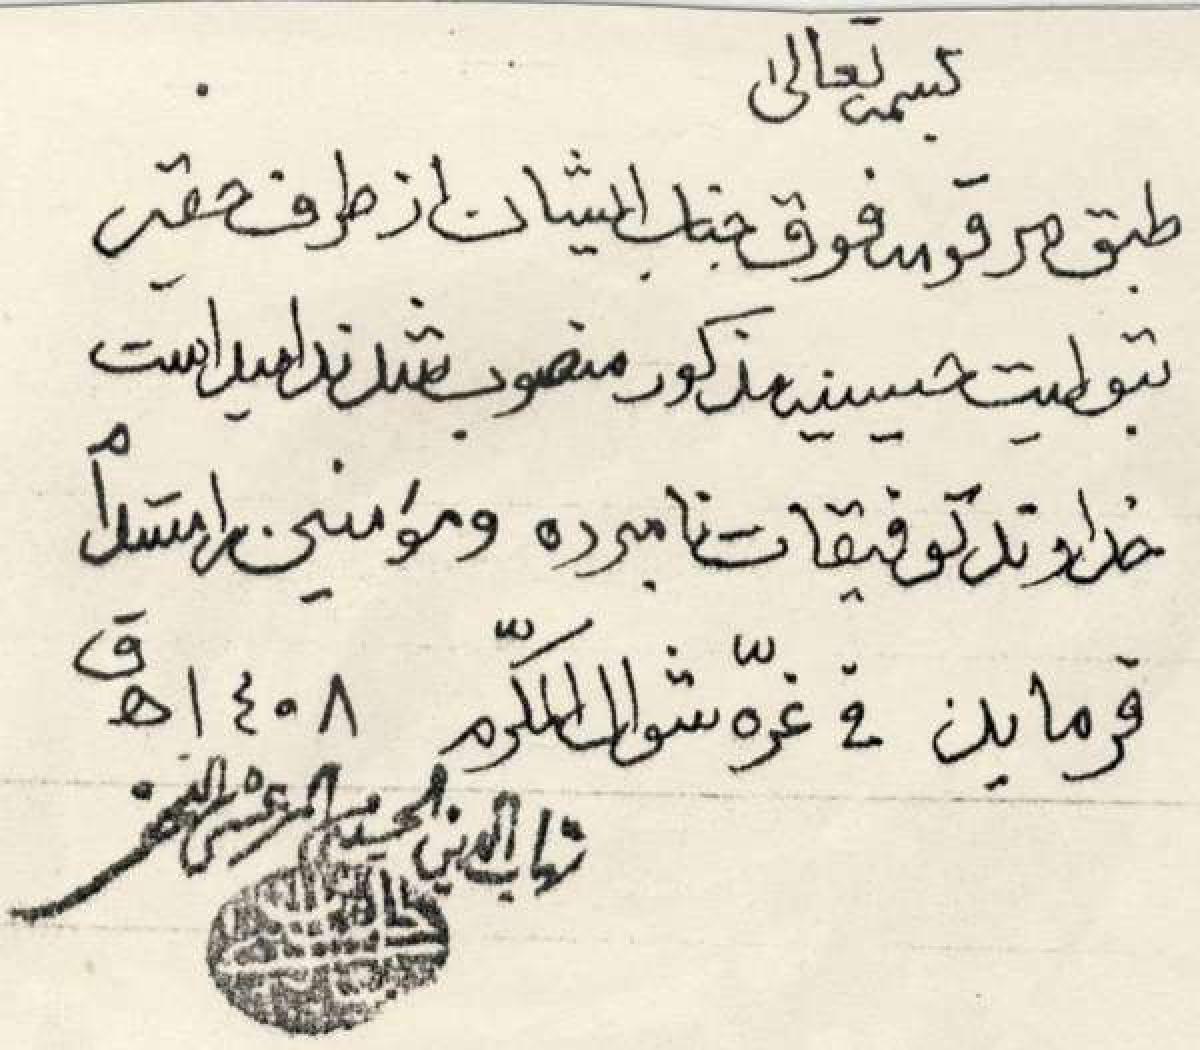 بسمه تعالی
طبق مرقومه فوق جناب ایشان از طرف حقیر
بتولیت حسینیه مذکور منصوب شدند امید است
خداوند توفیقات نامبرده و مؤمنین را مستدام
فرماید فی غرّه شوال المکرّم ۱٤۰۸ هـ ق
شهاب الدین الحسینی المرعشی النجفی